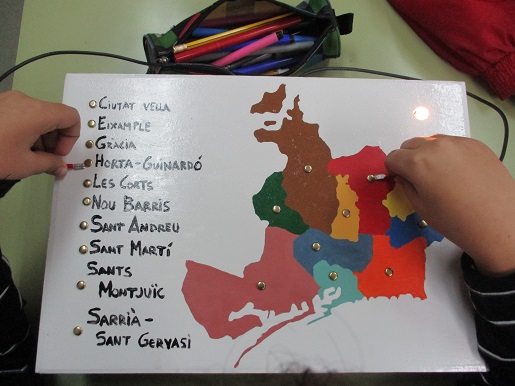 Ciutat vella
Eixample
Gràcia
Horta-Guinardó
Les Corts
Nou Barris
Sant Andreu
Sant Martí
Sants
Montjuïc
Sarrià-
Sant Gervasi